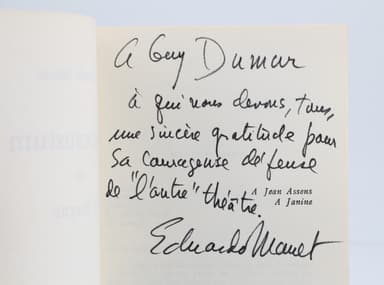 A Guy Dumur
à qui nous devons, tous,
une sincère gratitude pour
sa courageuse défense
de "l'autre" théâtre.
A Jean Assens
A Janine
Eduardo Manet